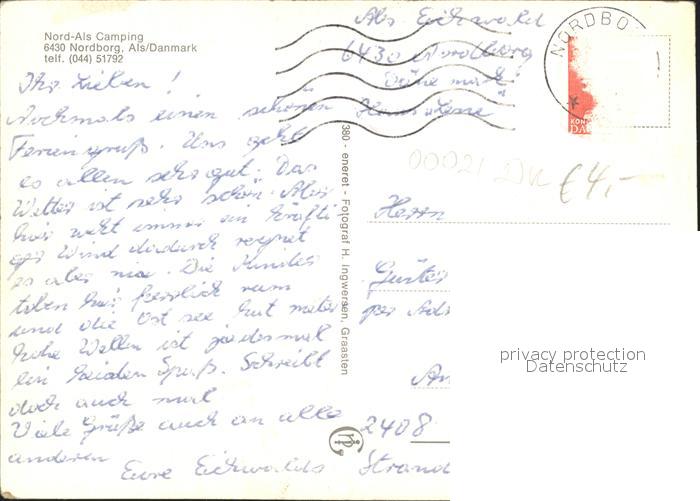 Nord-Als Camping
6430 Nordborg, Als/Danmark
telf. (044) 51792
Ihr Lieben!
Nochmals einen schönen
Feriengruß. Uns geht
es allen sehr gut. Das
Wetter ist sehr schön. Aber
hier weht immer ein kräfti-
ger Wind dadurch regnet
es aber nie. Die Kinder
toben hier herrlich rum
und die Ost see hat meter
hohe Wellen ist jedesmal
ein Spaß. Schreibt
doch auch mal
Viele Grüße auch an alle
anderen
Eure Eichwalds
Abs. Eichwald
6430 Nordborg
Däne mark
NORDBO
KON
DA
380 - eneret - Fotograf H. Ingwersen, Graasten
00021 DK
€ 4,-
Herrn
Günter
per Adr
An
2408
Strand
privacy protection
Datenschutz